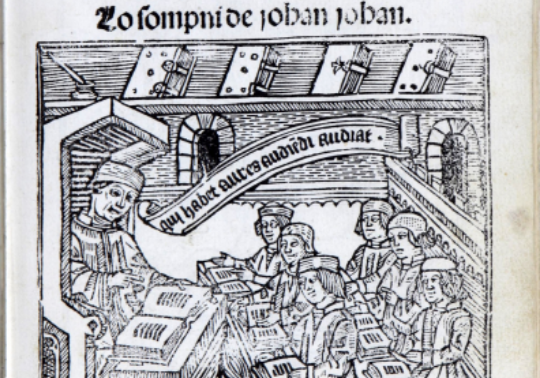 Lo sompni de johan johan.
qui habet aures audiēdi audiat.